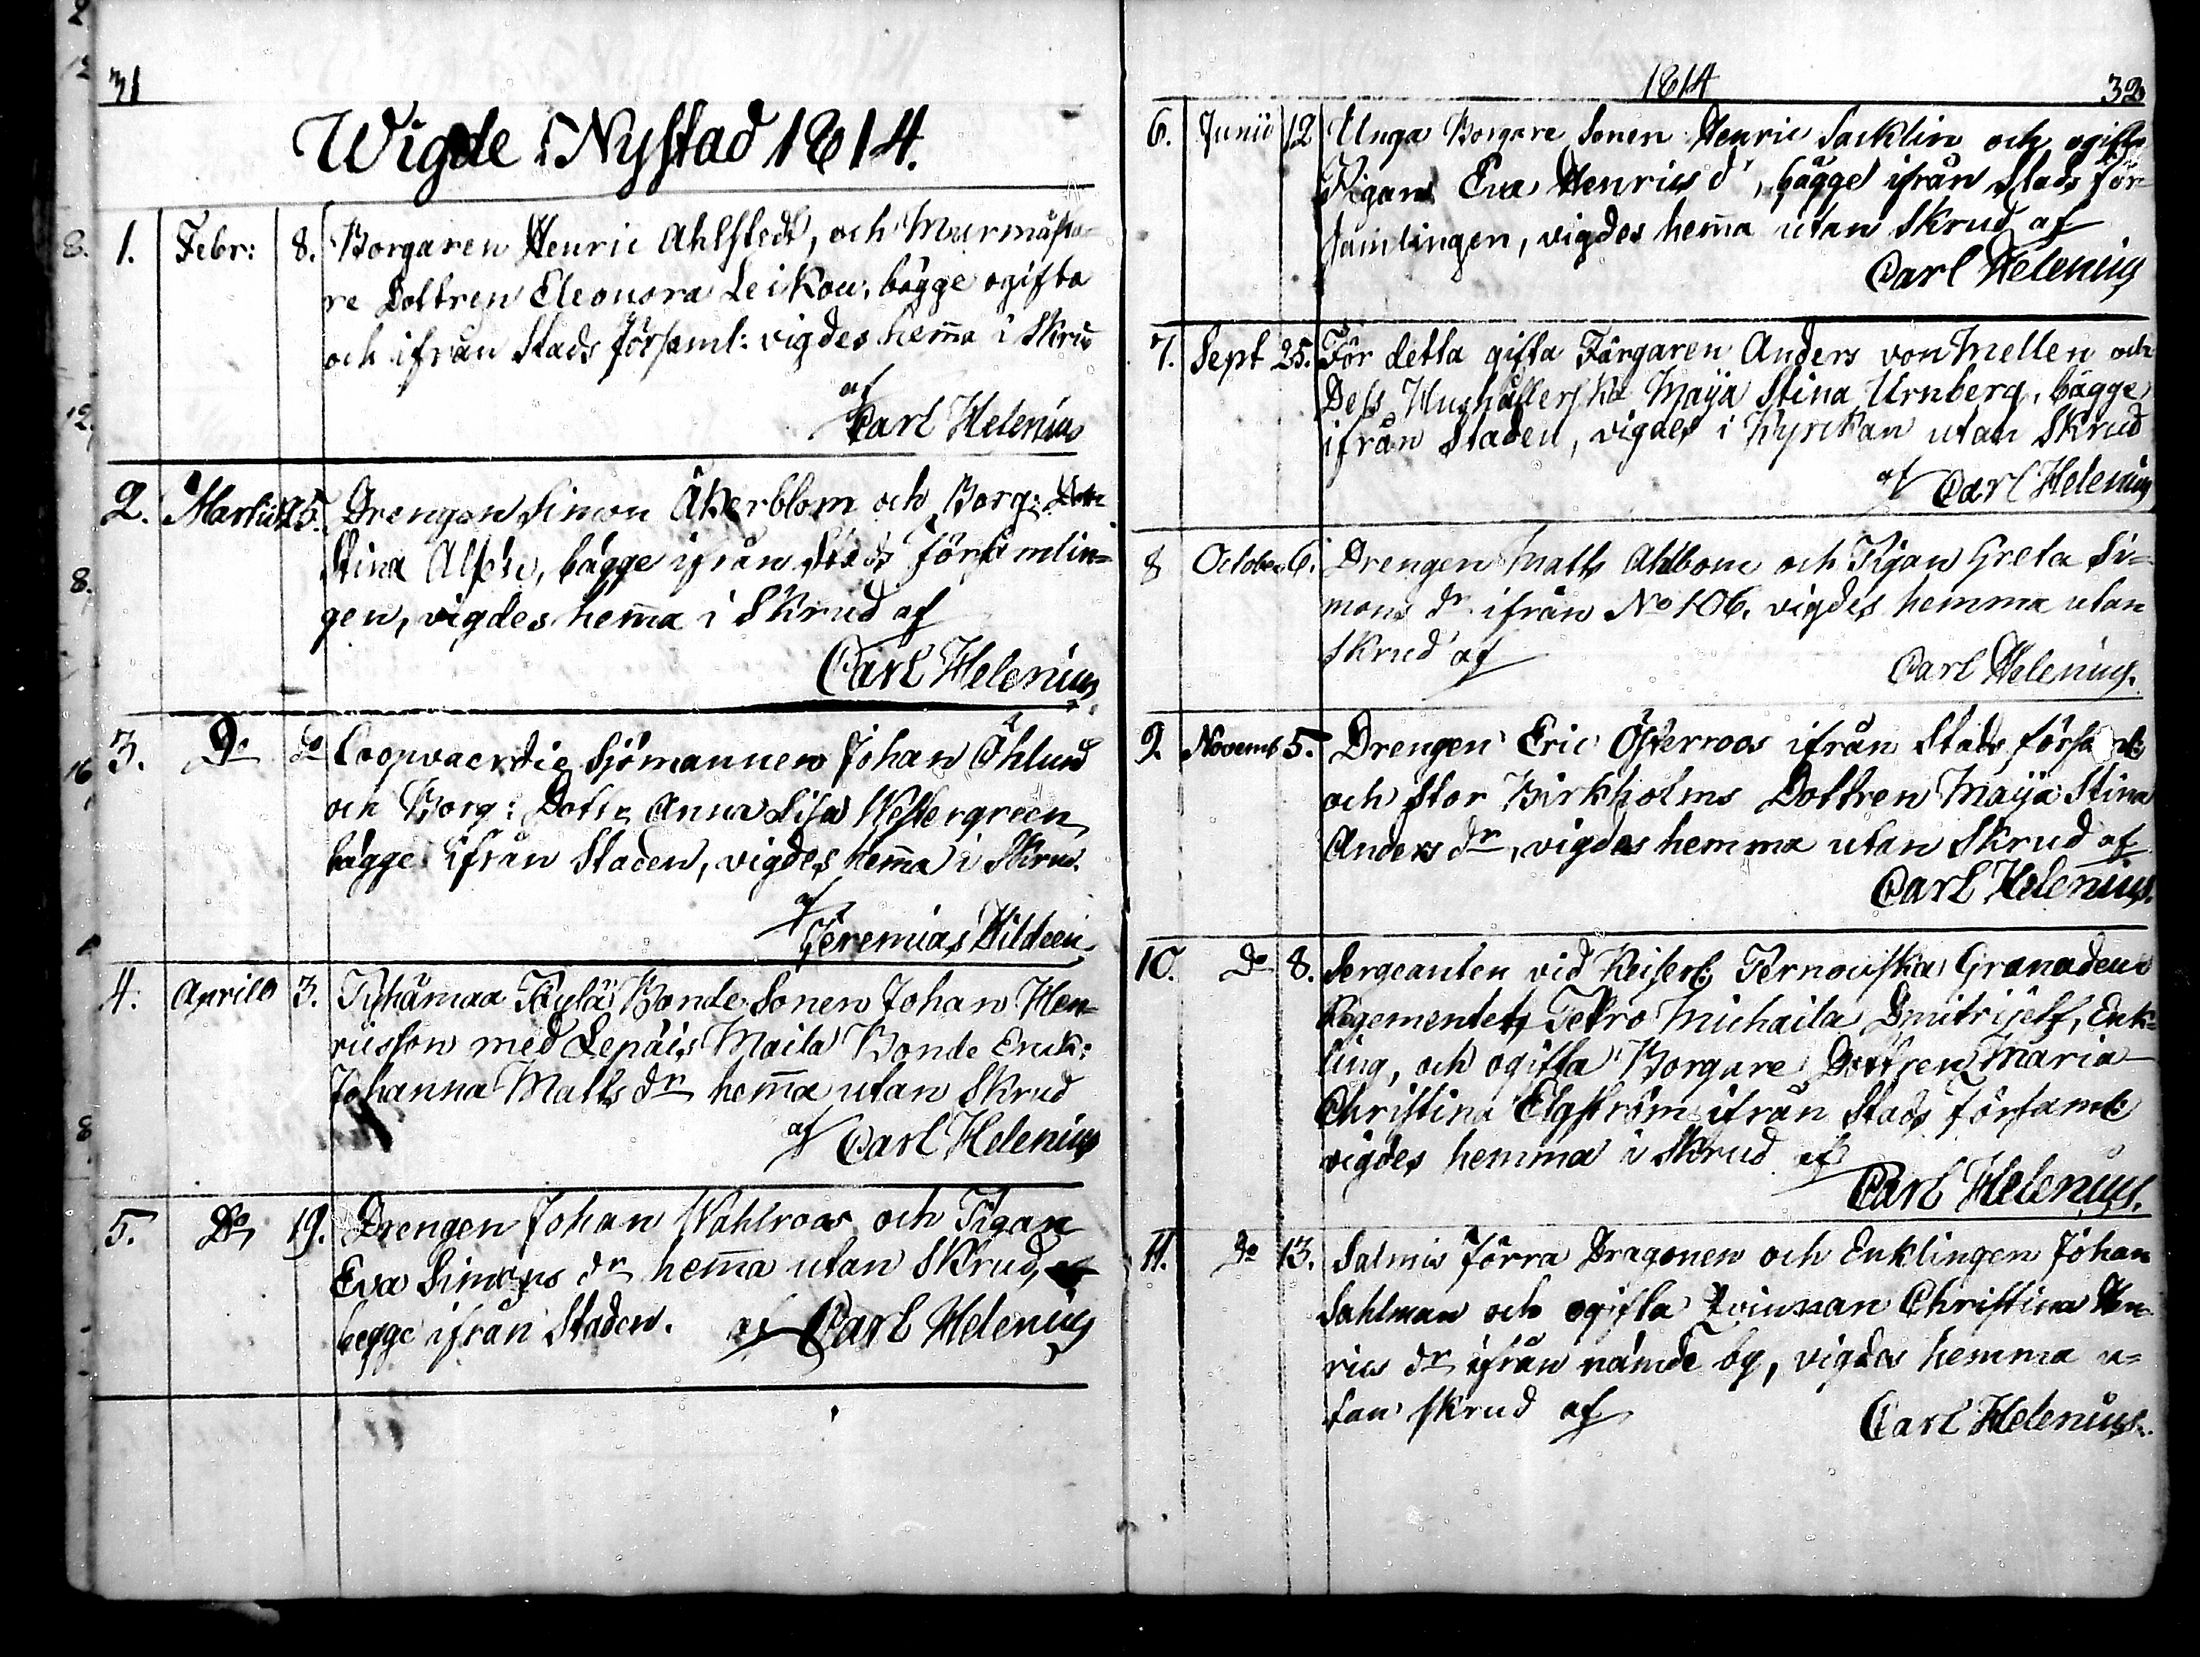 31
Wigde i Nystad 1814.
1. Febr: 8. Borgaren Henric Ahlstedt, och Murmästa-
re Dottren Eleonora Leikow, bägge ogifta
och ifrån Stads församl: vigdes hem̄a i Skrud
af
Carl Helenius
2. Martii 25. Drengen Simon Åkerblom och Borg:
Stina Alfén, bägge ifrån Stads församlin=
gen, vigdes hem̄a i Skrud af
Carl Helenius
3. Do Do Coopvaerdie Sjömannen Johan Öhlund
och Borg: Dottr Anna Lisa Westergreen,
bägge ifrån Staden, vigdes hem̄a i Skrud.
af
Jeremias Hildeen
4. Aprilis 3. Pyhämaa Bonde Sonen Johan Hen=
ricsson med Lepäis Maila Bonde Enck:
Johanna Matts dr hem̄a utan Skrud
af Carl Helenius
5. Do 19. Drengen Johan Wahlroos och Pigan
Eva Simons dr hem̄a utan Skrud,
begge ifrån Staden. af Carl Helenius
1814 32
6. Junii 12 Unga Borgare Sonen Henric Sacklin och ogifta
Pigan Eva Henrics dr, bägge ifrån Stads för-
samlingen, vigdes hem̄a utan Skrud af
Carl Helenius
7. Sept 25. För detta gifta Färgaren Anders von Mellen och
Dess Hushållerska Maija Stina Urnberg, bägge
ifrån Staden, vigdes i Kyrckan utan Skrud
af Carl Helenius
8 October 6. Drengen Matts Ahlbom och Pigan Greta Si=
mons dr ifrån No 106. vigdes hemma utan
Skrud af
Carl Helenius.
9 Novemb 5. Drengen Eric Österroos ifrån Stads församl:
och Stor Birkholms Dottren Maija Stina
Anders dr, vigdes hemma utan Skrud af
Carl Helenius.
10. Do 8. Sergeanten vid Keiserl: Pernouska Granadeur
Regementet, Petro Michaila Dmitrijeff, Enk=
ling, och ogifta Borgare Dottren Maria
Christina Elgström ifrån Stads församl:
vigdes hemma i Skrud af
Carl Helenius.
11. Do 13. Salmis Jörra Dragonen och Enklingen Johan
Sahlman och ogifta Qvinnan Christina Hen-
rics dr ifrån nämde by, vigdes hemma u=
tan Skrud af
Carl Helenius.